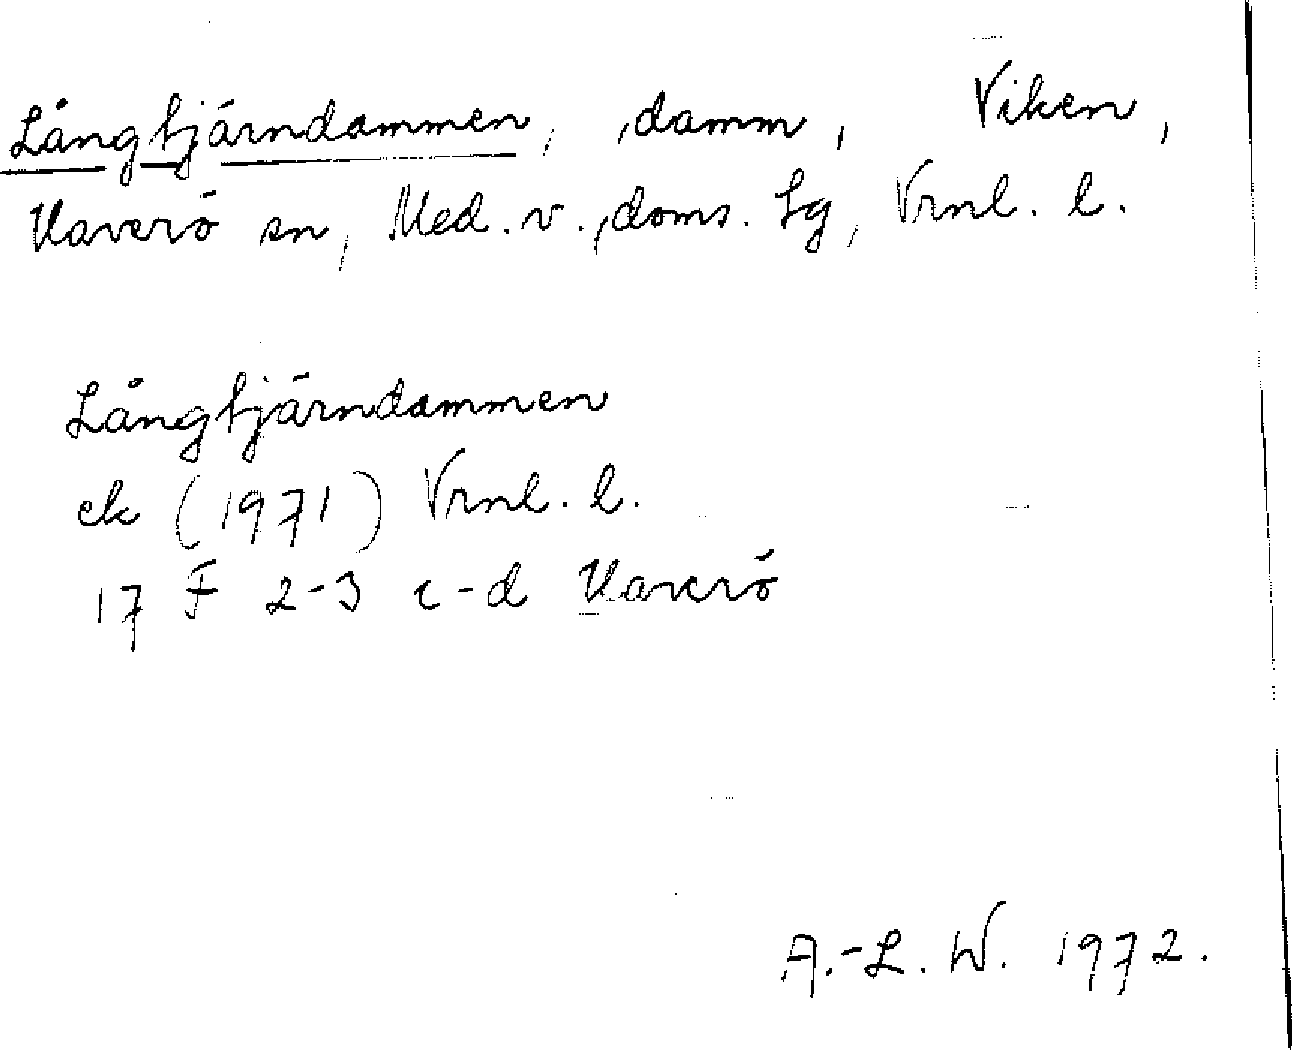 Långtjärndammen, damm, Viken,
Haverö sn, Med. v. doms. tg, Vrnl. l.
Långtjärndammen
ek (1971) Vrnl. l.
17 F 2-3 c-d Haverö
A.-L. W. 1972.